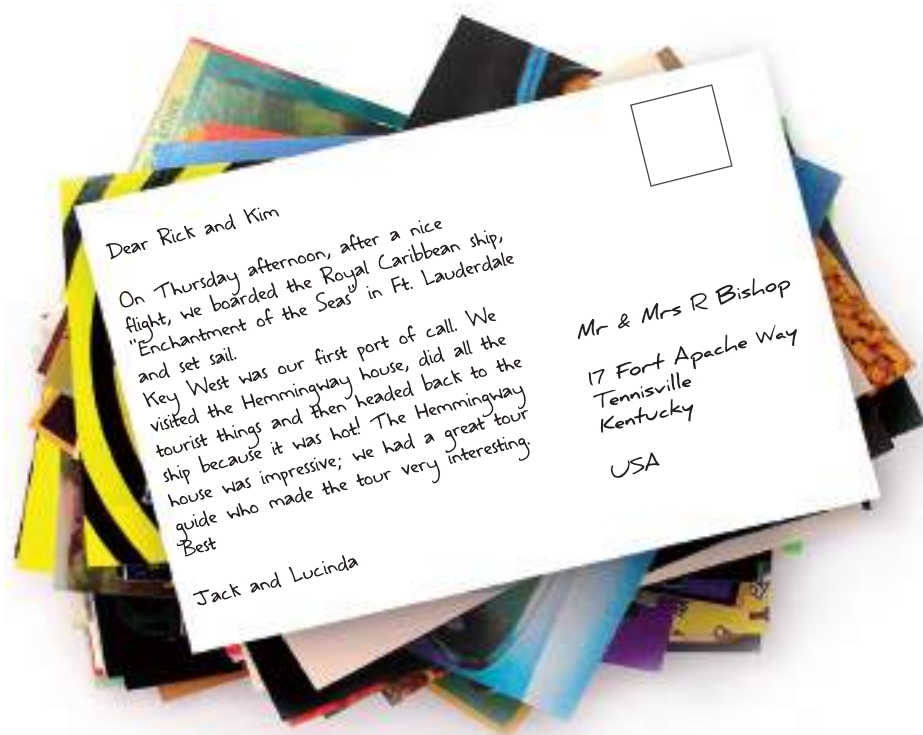 Dear Rick and Kim
On Thursday afternoon, after a nice
flight, we boarded the Royal Caribbean ship,
"Enchantment of the Seas" in Ft. Lauderdale
and set sail.
Key West was our first port of call. We
visited the Hemmingway house, did all the
tourist things and then headed back to the
ship because it was hot! The Hemmingway
house was impressive; we had a great tour
guide who made the tour very interesting.
Best
Jack and Lucinda
Mr & Mrs R Bishop
17 Fort Apache Way
Tennisville
Kentucky
USA